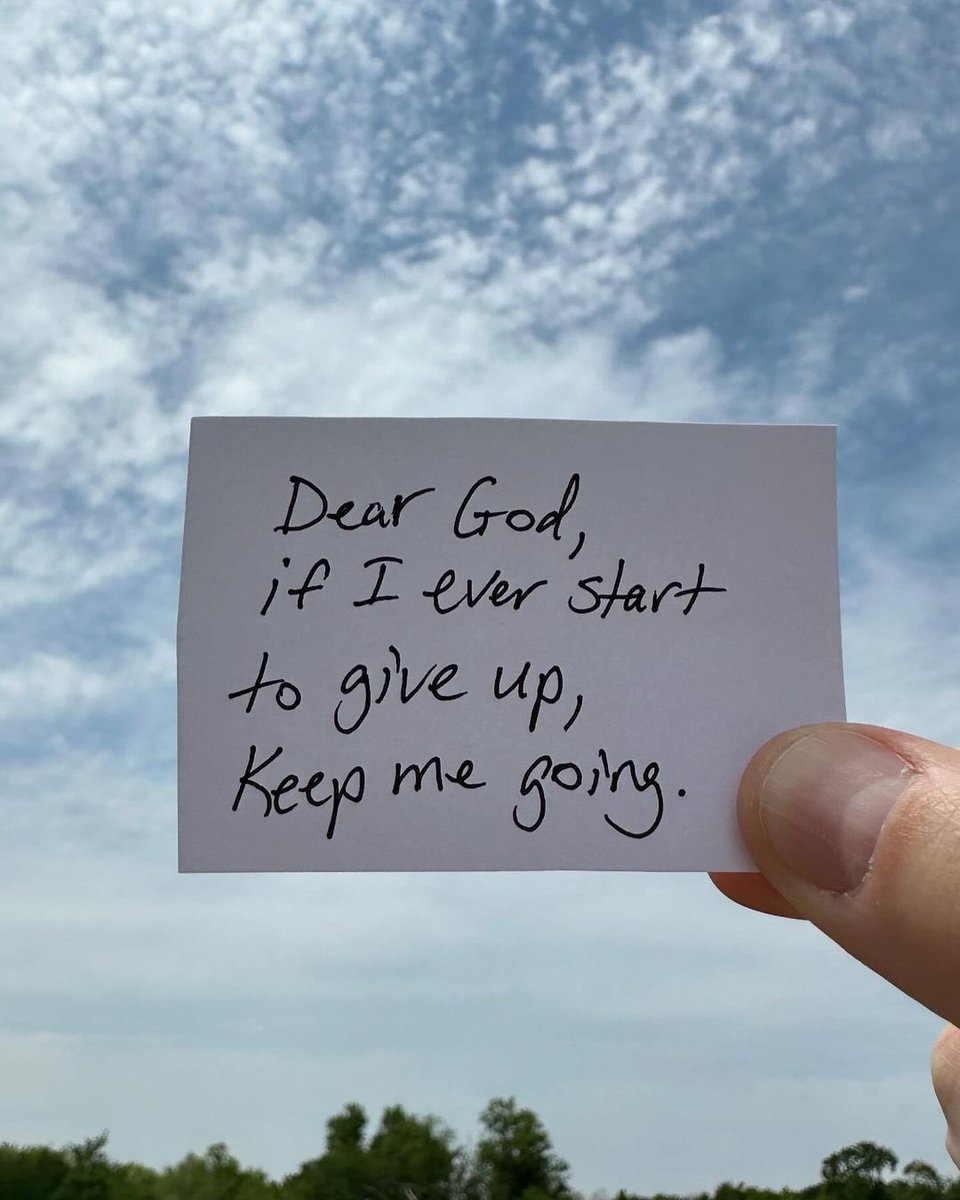 Dear God,
if I ever start
to give up,
Keep me going.